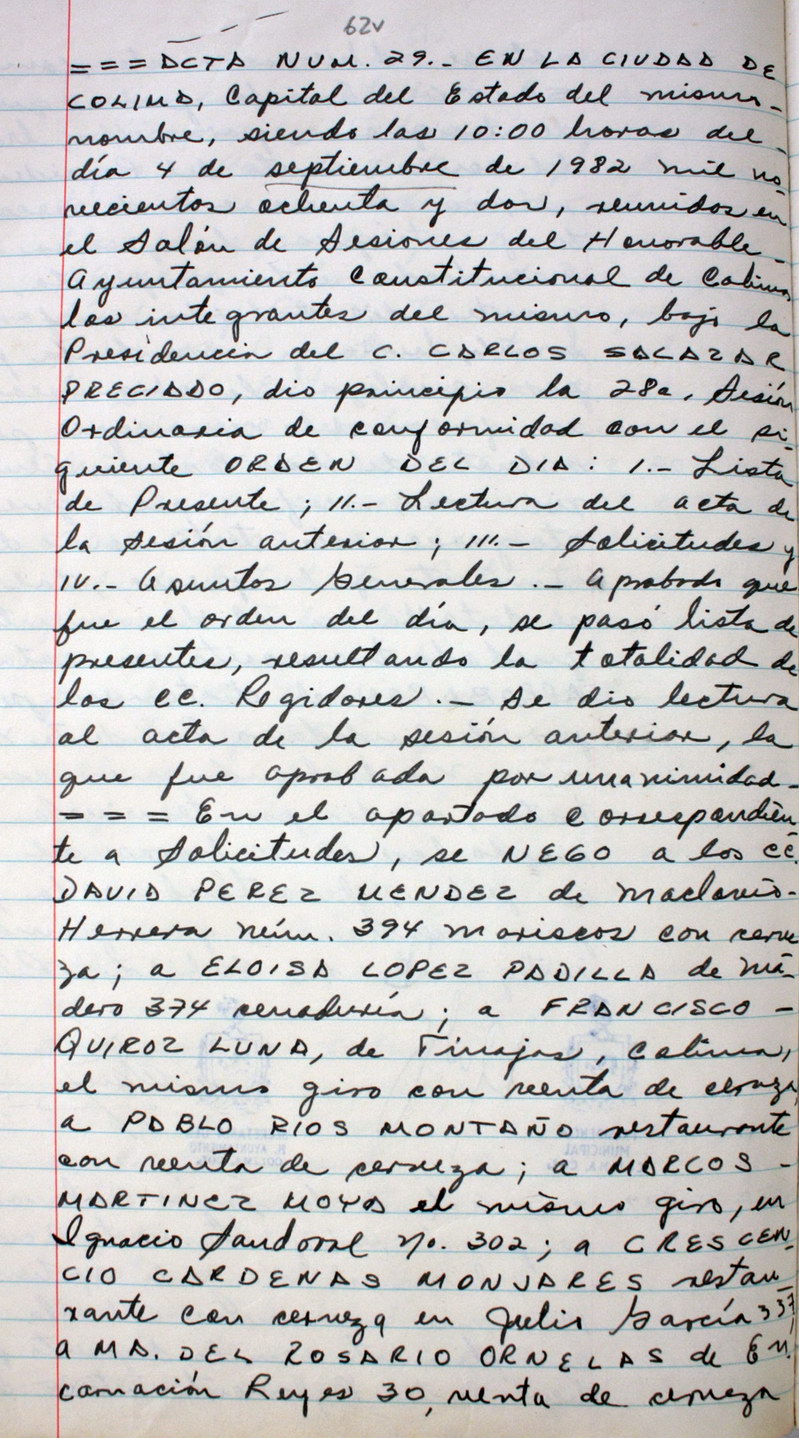 62v
= = = ACTA NUM. 29.- EN LA CIUDAD DE
COLIMA, Capital del Estado del mismo-
nombre, siendo las 10:00 horas del-
día 4 de septiembre de 1982 mil no-
vecientos ochenta y dos, reunidos en
el Salón de Sesiones del Honorable-
Ayuntamiento Constitucional de Colima
los integrantes del mismo, bajo la
Presidencia del C. CARLOS SALAZAR
PRECIADO, dio principio la 28a. Sesión
Ordinaria de conformidad con el si-
guiente ORDEN DEL DIA: I.- Lista
de Presente; II.- Lectura del acta de
la sesión anterior; III.- Solicitudes y
IV.- Asuntos Generales.- Aprobado que
fue el orden del día, se pasó lista de
presentes, resultando la totalidad de
los CC. Regidores.- Se dio lectura
al acta de la sesión anterior, la
que fue aprobada por unanimidad-
= = = En el apartado correspondien-
te a Solicitudes, se NEGO a los CC.
DAVID PEREZ MENDEZ de Maclovio-
Herrera núm. 394 mariscos con cerve-
za; a ELOISA LOPEZ PADILLA de Ma-
dero 374 cenaduría; a FRANCISCO -
QUIROZ LUNA, de Tinajas, Colima,
el mismo giro con venta de cerveza,
a PABLO RIOS MONTAÑO restaurante
con venta de cerveza; a MARCOS -
MARTINEZ MOYA el mismo giro, en
Ignacio Sandoval No. 302; a CRESCEN-
CIO CARDENAS MONJARES restau-
rante con cerveza en Julio García 337,
a MA. DEL ROSARIO ORNELAS de En-
carnación Reyes 30, venta de cerveza